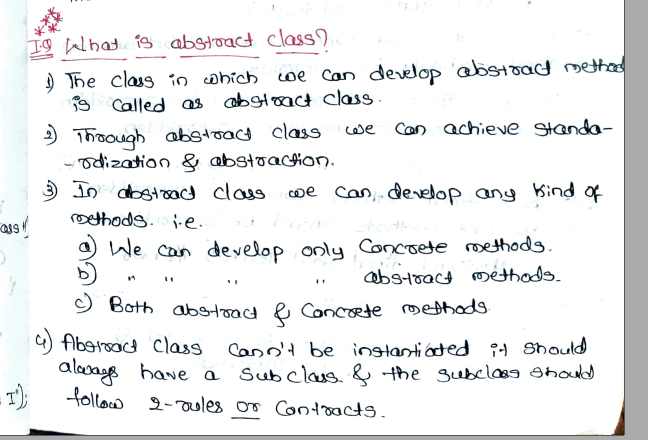 I.Q What is abstract class?
1) The class in which we can develop abstract method
is called as abstract class.
2) Through abstract class we can achieve standa-
-rdization & abstraction.
3) In abstract class we can, develop any kind of
methods. i.e.
a) We can develop only Concrete methods.
b) " " " " abstract methods.
c) Both abstract & Concrete methods
4) Abstract class cann't be instantiated it should
always have a Sub class & the subclass should
follow 2-rules or Contracts.